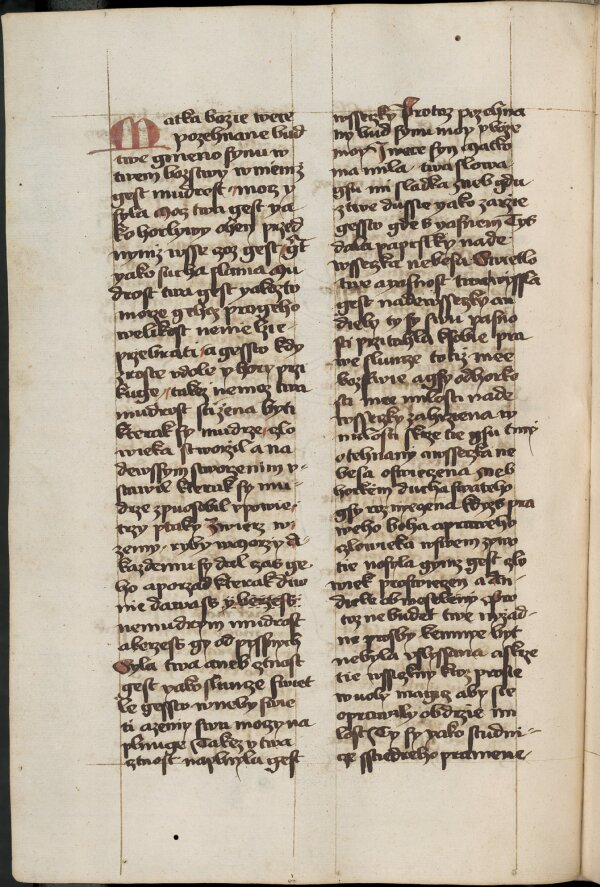 Matka bozie wece
pozehnane bud
twe gmeno synu w
twem bozstwy w niemz
gest mudrost moz y
syla Moz twa gest ya
ko horlywy ohen przed
nymz wsse czoz gest gt
yako sucha slama Mu
drost twa gest yakozto
morze gehoz pro geho
welikost nemoze
przebrati a gessto kdy
zroste wdole y hory przi
kuge takez nemoz twa
mudrost stizena byti
kterak sy mudrze czlo
wieka stworzil a na
dewssym stworzenim v
stawil kterak sy mu
drze zpuosobil y powie
trzy ptaky Zwierz w
zemy ryby w morzy A
kazdemu sy dal czas ge
ho a porzad kterak diw
nie dawass y berzess
nemudrym mudrost
a berzess gy od pyssnych
Syla twa aneb cztnost
gest yako slunze swiet
le gessto w neby swie
ti a zemy swu moczy na
plnuge Takez y twa
cztnost naplnyla gest
wssetky Protoz pozehna
ny bud synu moy y boze
moy I wece syn Matko
ma mila twa slowa
gsu mi sladka zneb gdu
z twe dussie yako zarzie
gessto gde s yasnem Tys
dala paprslky nade
wssetka nebesa Swietlo
twe a yasnost twa wyssla
gest nade wssetky an
diely ty sy swu yasno
sti przitahla k sobie pra
we slunze totiz mee
bozstwie a gsy od horko
sti mee milosti nade
wssetky zahrziena w
milosti skrze tie gsu tmy
otehnany a wssetka ne
besa oswiecena zneb
horkem ducha swateho
gsy rozmezena kdyz pra
weho boha a praweho
czlowieka w swem zywo
tie nosyla gymz gest czlo
wiek proswiecen a an
diele obweseleny Pro
toz ne budet twe nizad
ne prosby kemuze byt
nebyla vslyssana a skrze
tie wssickny ktoz prosie
w uoly magiz aby sie
oprawily obdrzie mi
lost Ty sy yako studni
ge sstiedreho pramene